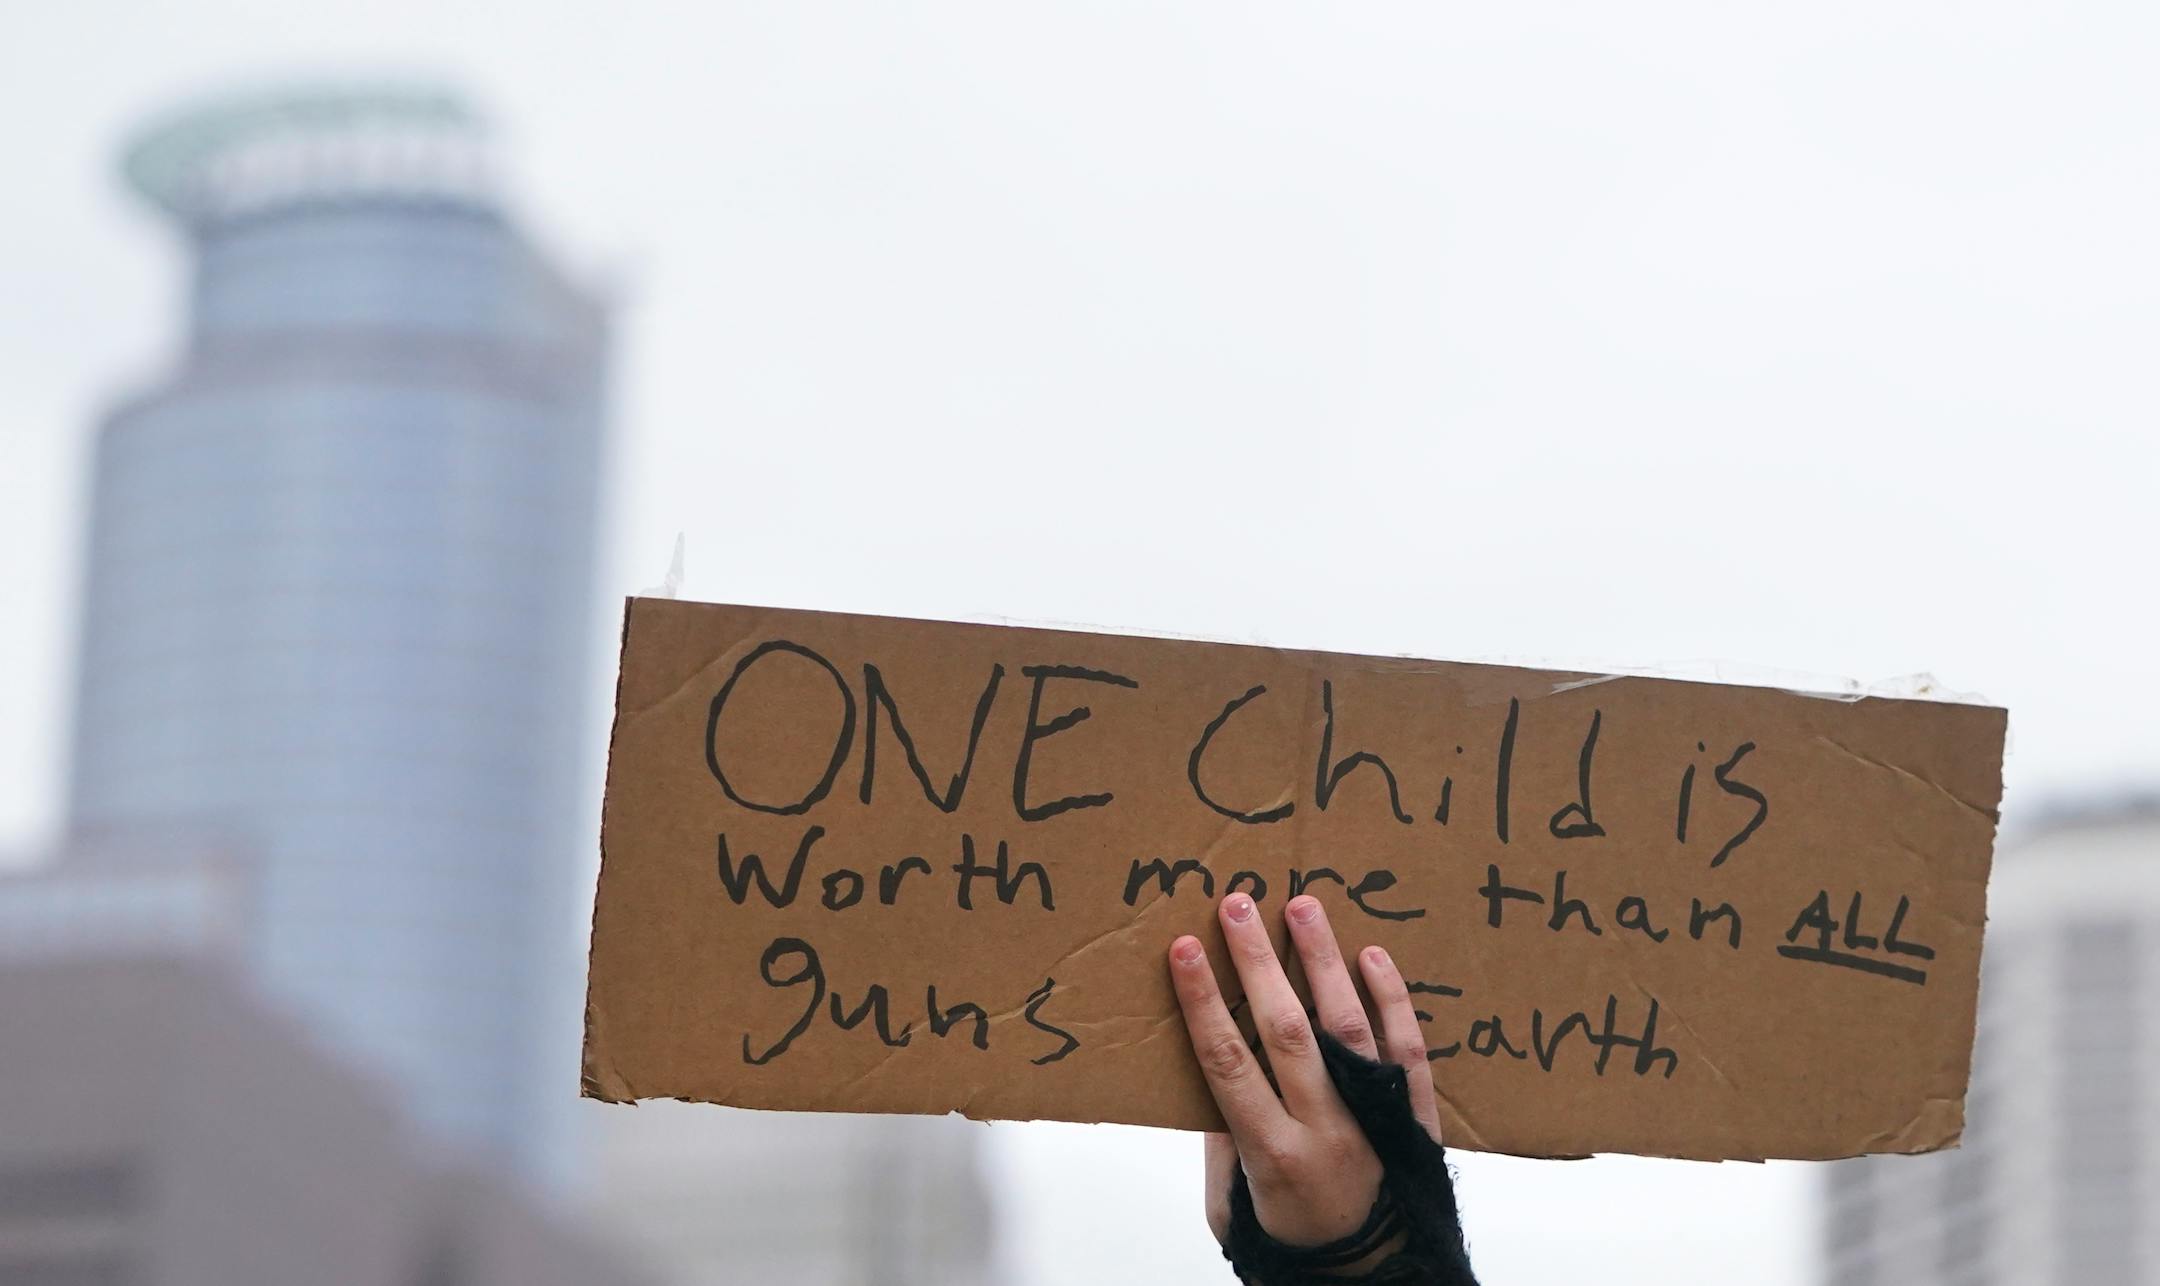 ONE Child is
Worth more than ALL
guns Earth